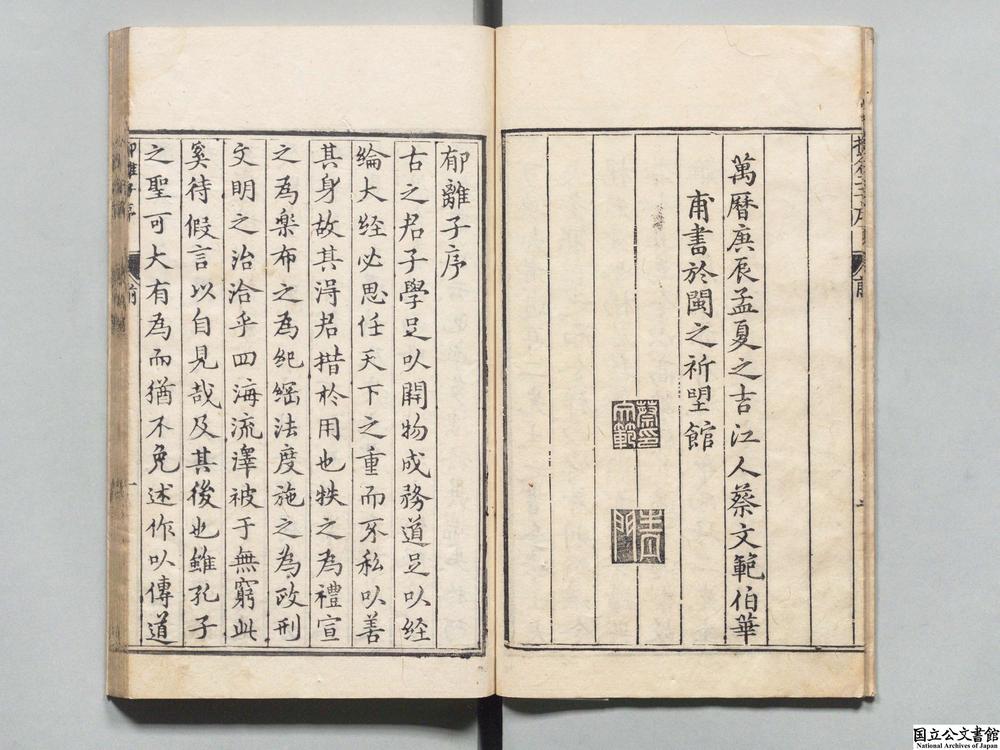 萬曆庚辰孟夏之吉江人蔡文範伯華
甫書於閩之祈朢館
蔡印文範
青門
郁離子序
古之君子學足以開物成務道足以経
綸大経必思任天下之重而不私以善
其身故其淂君措扵用也秩之為禮宣
之為楽布之為紀綱法度施之為政刑
文明之治洽乎四海流澤被于無窮此
奚待假言以自見哉及其後也雖孔子
之聖可大有為而猶不免述作以傳道
郁離子序
前
一
国立公文書館
National Archives of Japan